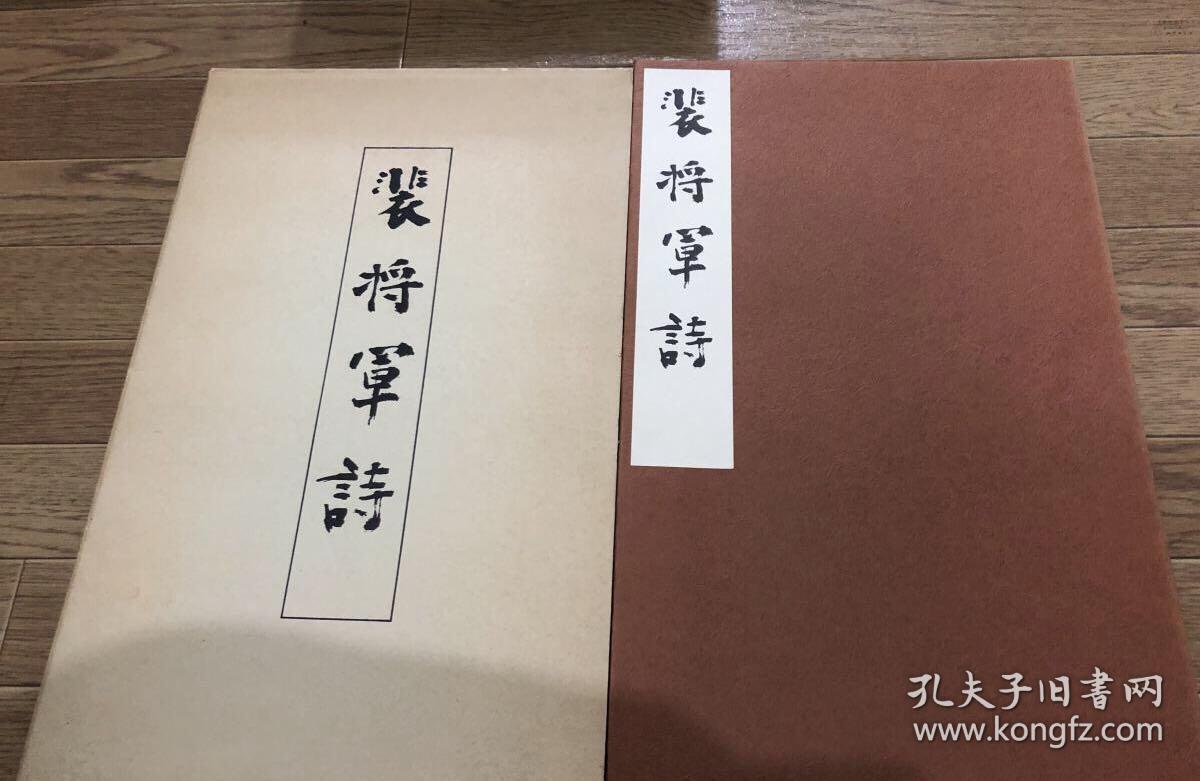 裴将軍詩
裴将軍詩
孔夫子旧書网
www.kongfz.com